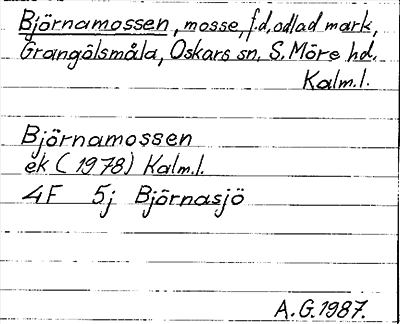 Björnamossen, mosse, f.d. odlad mark,
Grangölsmåla, Oskars sn. S. Möre hd.
Kalm.l.
Björnamossen
ek (1978) Kalm.l.
4F 5j Björnasjö
A.G. 1987.